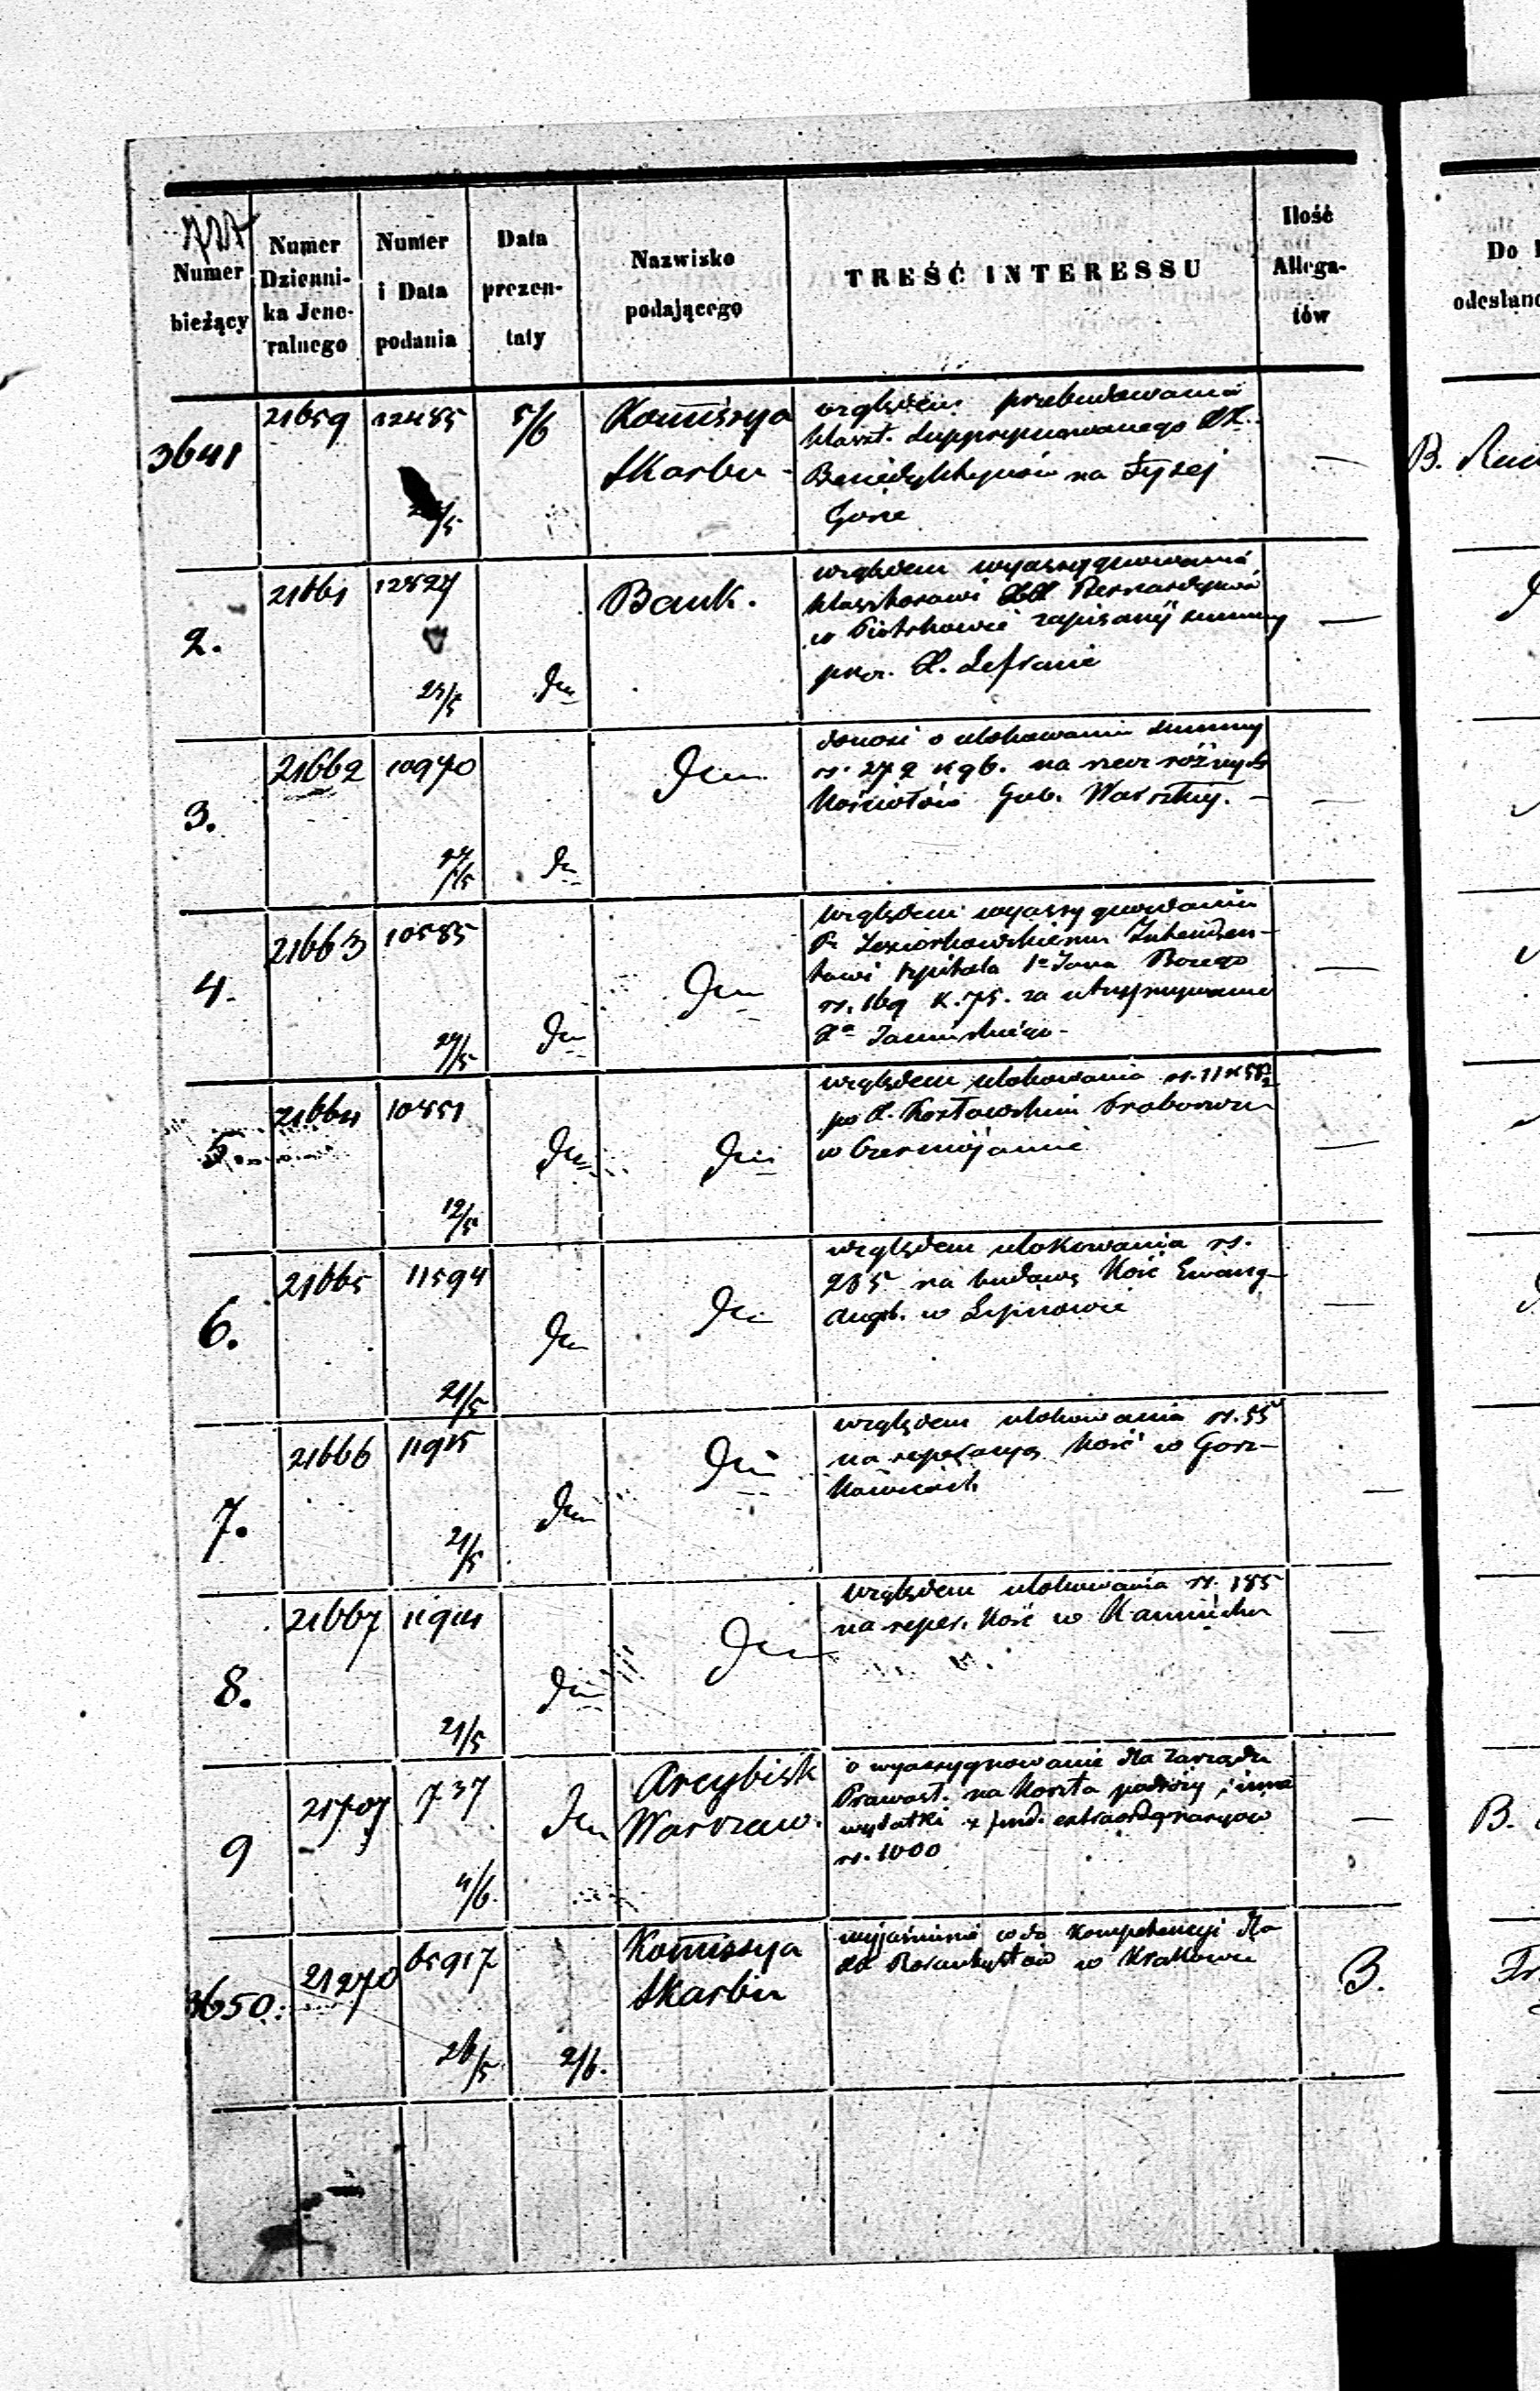 Numer bieżący
Numer Dzienni- ka Jene- ralnego
Numer i Data podania
Data prezen- taty
Nazwisko podającego
TREŚĆ INTERESSU
Ilość Allega- tów
Do
odesłano
3641
21659
12485
/5
5/6
Komissya
Skarbu -
względem przebudowania
klaszt. supprymowanego XX.
Benedyktynów na Łysej
Górze
—
B.
2.
21661
12527
/5
Dm
Bank.
względem wyassygnowania
klasztorowi XX Bernardynów
w Piotrkowie zapisanej summy
przez X.
—
3.
21662
10970
/5
Dm
donosi o ulokowaniu summy
rs. 272 k 96. na rzecz różnych
kościołów Gub. Warszkiej. -
—
4.
21663
10585
/5
Dm
Dm
względem wyassygnowania
P. Intenden-
towi szpitala Jana Bożego
rs. 169 k. 75. za utrzymywanie
Xa
—
5
21664
10551
12/5
Dm
Dm
względem ulokowania rs. 11 k
po X. Kozłowskim Proboszczu
w
—
6.
21665
11594
21/5
Dm
Dm
względem ulokowania rs.
285 na budowę Kość Ewang-
augsb. w
—
7.
21666
21/5
Dm
Dm
względem ulokowania rs. 55
na reperacyą Kość w Gorz-
kowicach
—
8.
21667
21/5
Dm
Dm
względem ulokowania rs. 185
na reper. Kość w
—
9
21707
737
4/6.
Dm
Arcybisk
Warszaw.
o wyassygnowanie dla Zarządu
Prawosł. na koszta podróży i inne
wydatki z fund. extraordynaryjów
rs. 1000
—
B.
3650.
21270
65917
26/5
2/6.
Komissya
Skarbu
wyjaśnienie co do kompetencyi dla
w Krakowie
3.